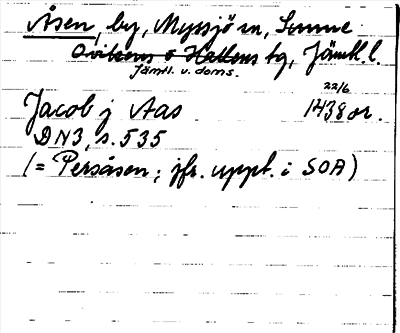 Åsen, by, Myssjö sn, Sunne
Ovikens o Hallens tg, Jämtl. l.
Jämtl. v. doms.
22/6
Jacob j Aas 1438 or.
DN3, s. 535
(= Persåsen; jfr. uppt. i SOA)